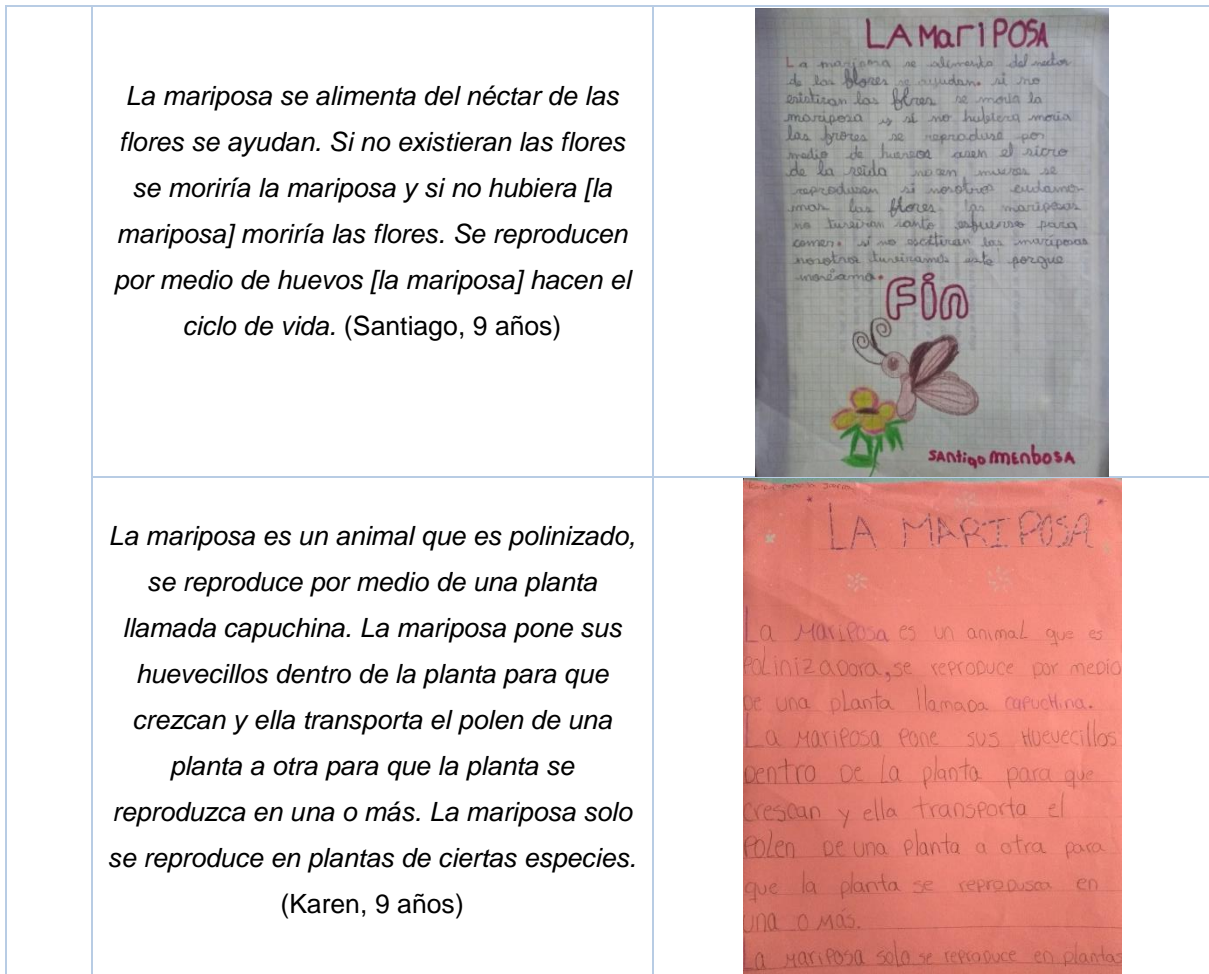 La mariposa se alimenta del néctar de las
flores se ayudan. Si no existieran las flores
se moriría la mariposa y si no hubiera [la
mariposa] moriría las flores. Se reproducen
por medio de huevos [la mariposa] hacen el
ciclo de vida. (Santiago, 9 años)
LA MariPOSA
La mariposa se alimenta del nectar
de las flores se ayudan. si no
las flores se moria la
mariposa y si no hubiera moria
las se reproduse por
medio de asen el sicro
de la nasen se
reprodusen si nosotros cudamos
mas las flores. las mariposas
no esfuerso para
comer. si no las mariposas
nosotros porque

Fin
SAntigo MENbOSA
La mariposa es un animal que es polinizado,
se reproduce por medio de una planta
llamada capuchina. La mariposa pone sus
huevecillos dentro de la planta para que
crezcan y ella transporta el polen de una
planta a otra para que la planta se
reproduzca en una o más. La mariposa solo
se reproduce en plantas de ciertas especies.
(Karen, 9 años)
LA MARIPOSA
La Mariposa es un animal que es
Polinizadora, se reproduce por medio
de una planta llamada capuchina.
La Mariposa Pone sus Huevecillos
Dentro De la planta para que
Crescan y ella transporta el
Polen De una Planta a otra para
que la planta se reproDusca en
una o más.
La Mariposa solo se reproduce en plantas